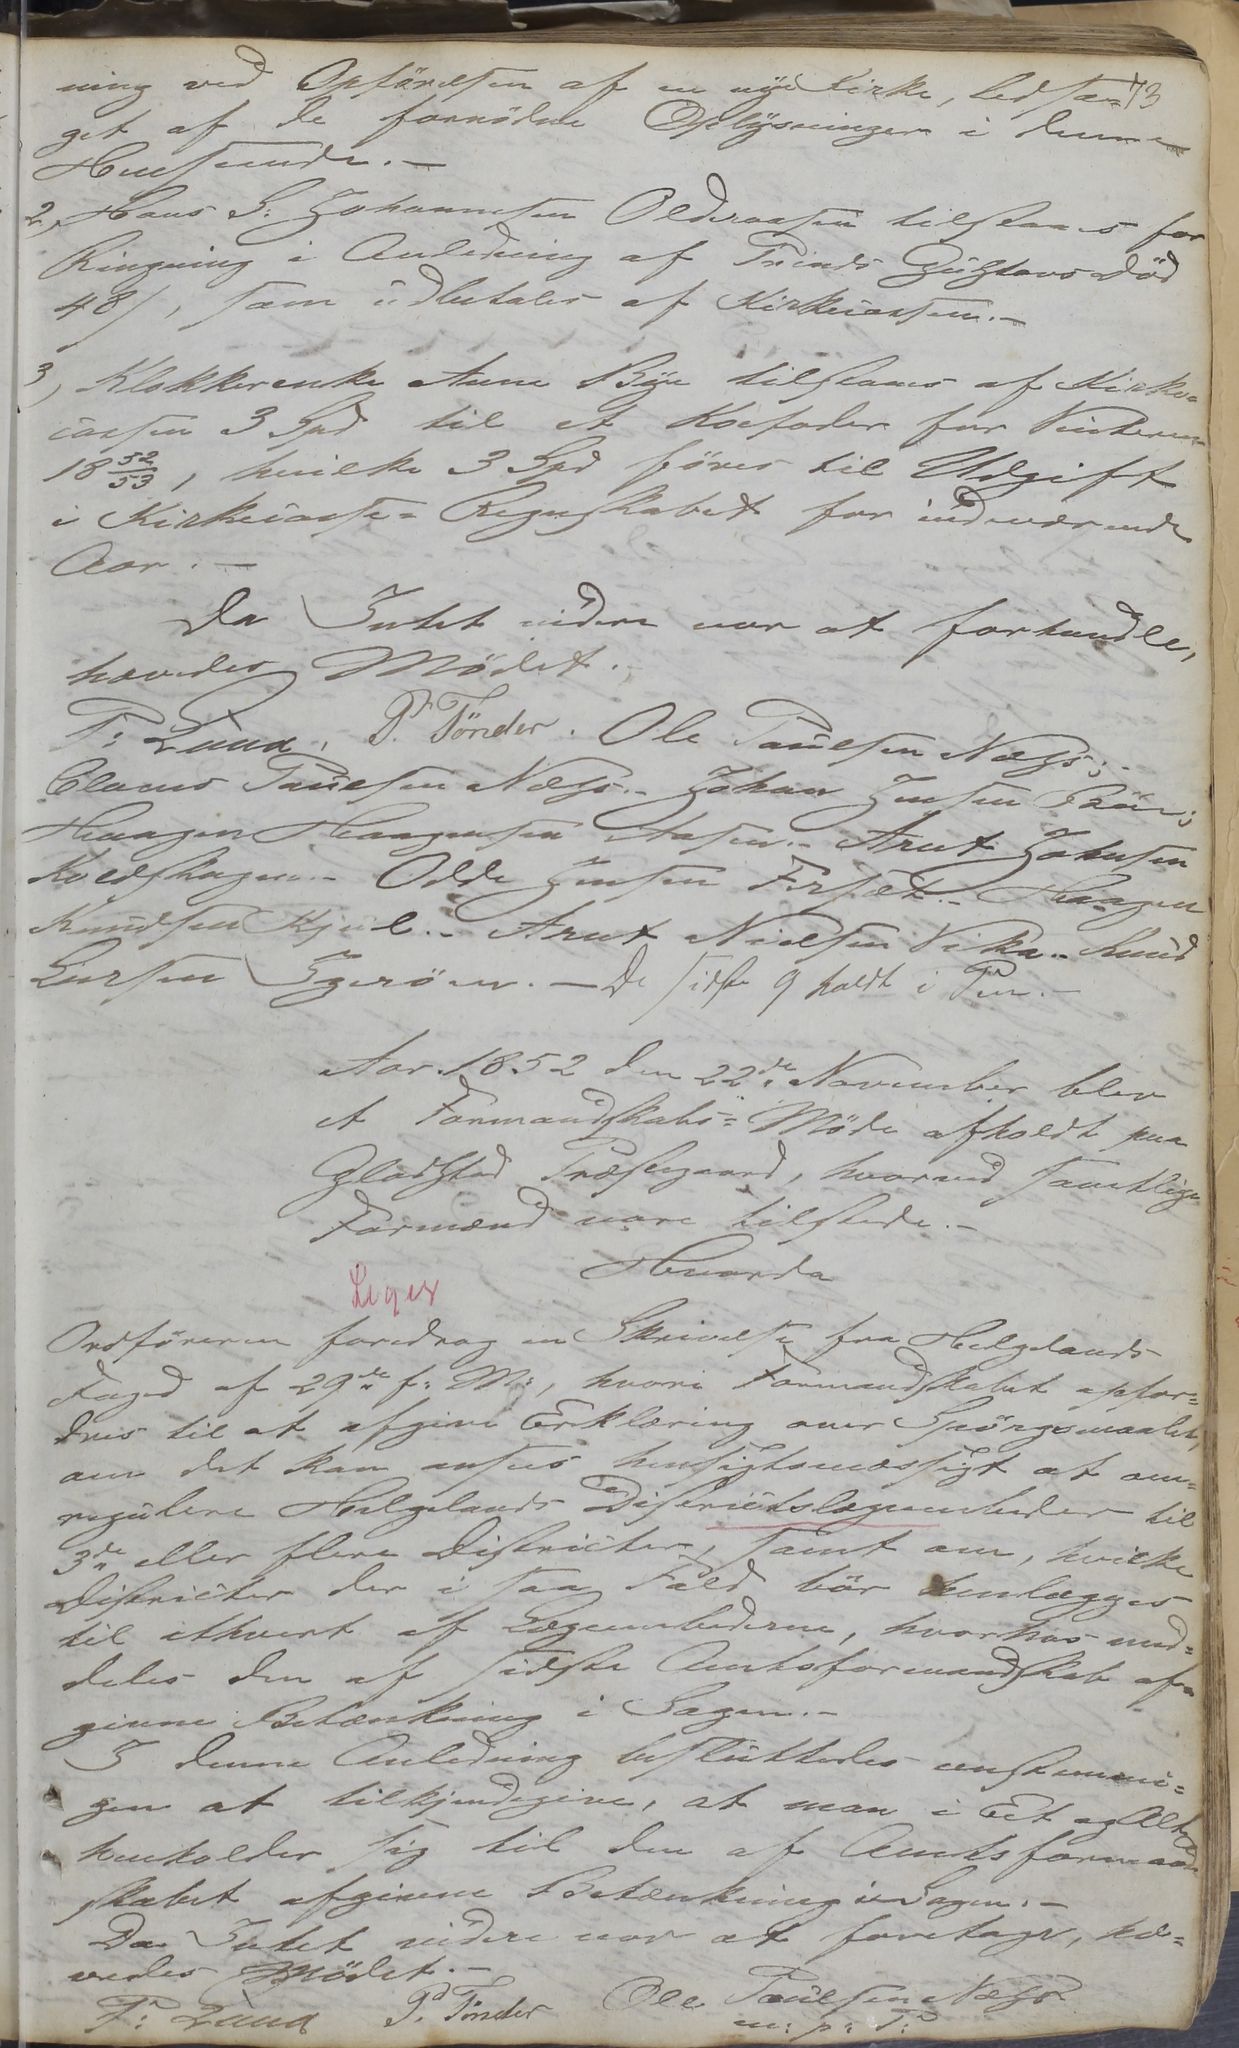 ning ved Opførelsen af en nye Kirke, ledsa- 73
get af de fornødne Oplysninger i denne
Henseende. –
2, Hans S: Johannesen Olderaasen tilstaaes for
Ringning i Anledning af Prinds Gustavs Død
48 /, som udbetales af Kirkecassen. –
3, Klokkerenke Anne Bye tilstaaes af Kirke=
cassen 3 Spd til et Koefoder for Vinteren
18 52/53, hvilke 3 Spd føres til Udgift
i Kirkecasse= Regnskabet for indeværende
Aar. –
Da Intet videre var at forhandle,
hævedes Mødet. –
P: Lund. P. Tønder. Ole Paulsen Næss; –
Claus Paulsen Næss. – Johan Jensen
Haagen Haagensen Aasen. – Arnt Johnsen
Kvedshagen. – Odde Jensen Forsæt. – Haagen
Knudsen Kjul. – Arnt Nielsen Vika. – Knud
Larsen Ygerøen. – De sidste 9 holdt i Pen. –
Aar 1852 den 22de November blev
et Formandskabs= Møde afholdt paa
Gladstad Præstegaard, hvorved samtlige
Formænd vare tilstede. –
Hvorda
Leger
Ordføreren foredrog en Skrivelse fra Helgelands
Foged af 29de f: M:, hvori Formandskabet opfor=
dres til at afgive Erklæring over Spørgsmaalet,
om det kan ansees hensigtsmæssigt at om=
regulere Helgelands Districtslægeembeder til
3de eller flere Districter, samt om, hvilke
Districter der i saa Fald bør henlægges
til ethvert af Lægeembederne, hvorhos med=
deles den af sidste Amtsformandskab af=
givne Betænkning i Sagen. –
I denne Anledning besluttedes enstemmi=
gen at tilkjendegive, at man i Eet og Alt
henholder sig til den af Amtsformand
skabet afgivne Betænkning i Sagen. –
Da Intet videre var at foretage, hæ=
vedes Mødet. –
P: Lund P. Tønder Ole Paulsen Næss
m: p: P: